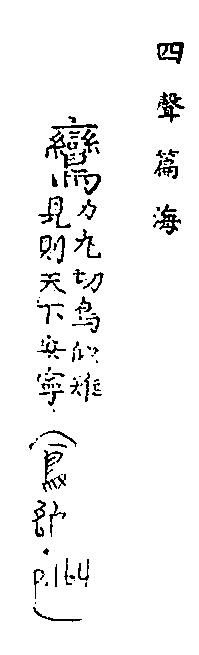 四聲篇海
鸞
力九切鳥似雉
見則天下安寧
(鳥部.p.164)